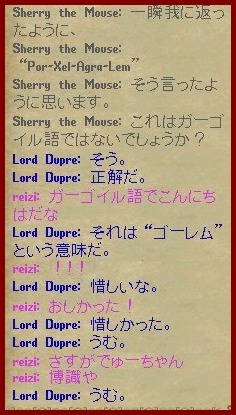 Sherry the Mouse: 一瞬我に返っ
たように、
Sherry the Mouse:
“Por-Xel-Agra-Lem”
Sherry the Mouse: そう言ったよ
うに思います。
Sherry the Mouse: これはガーゴ
イル語ではないでしょうか？
Lord Dupre: そう。
Lord Dupre: 正解だ。
reizi: ガーゴイル語でこんにち
はだな
Lord Dupre: それは“ゴーレム”
という意味だ。
reizi: ！！！
Lord Dupre: 惜しいな。
reizi: おしかった！
Lord Dupre: 惜しかった。
Lord Dupre: うむ。
reizi: さすがでゅーちゃん
reizi: 博識や
Lord Dupre: うむ。